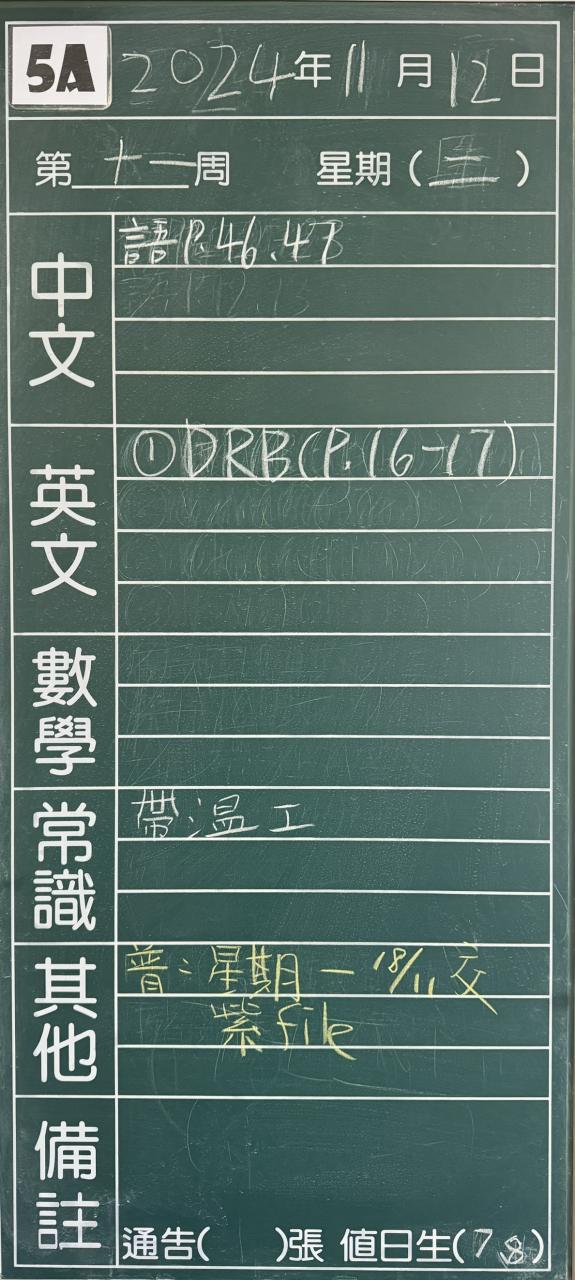 5A 2024年11月12日
第十一周 星期(二)
中文
語P.46.47
英文
①DRB(P.16-17)
數學
常識
帶:温工
其他
普:星期一18/11交
紫file
備註
通告( )張 值日生(7 8)